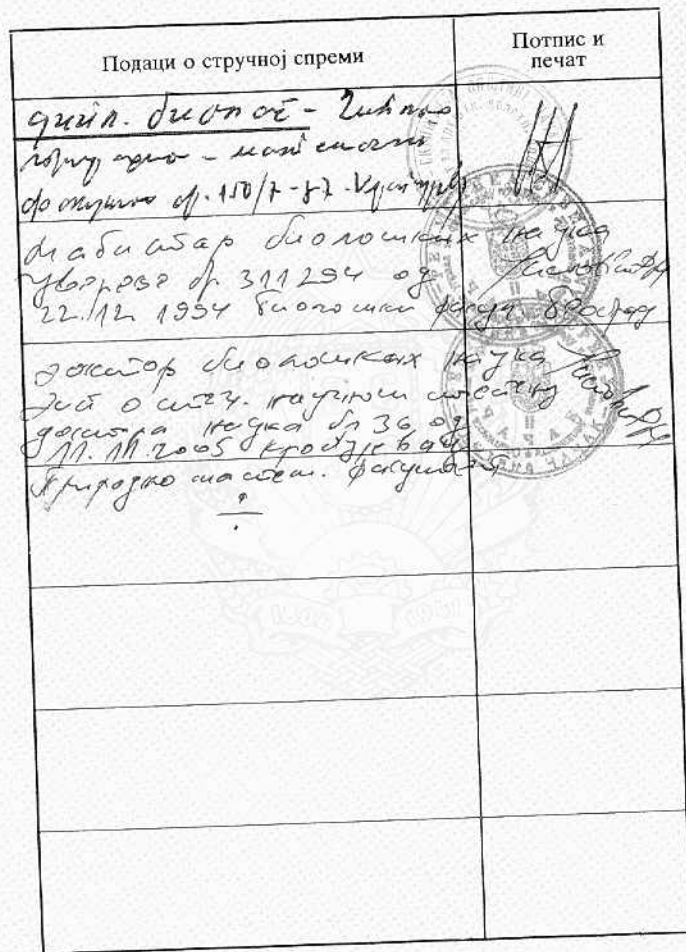 Подаци о стручној спреми
Потпис и
печат
дипл. биолог - Диплома
природно - математички
факултет бр. 150/7-87. Крагујевац
магистар биолошких наука
Уверење бр. 311294 од
22.12.1994 Биолошки факул. Београд
доктор биолошких наука
о стеч. научном степену
доктора наука бр 36 од
11.11.2005 Крагујевац
Природно матем. факултет